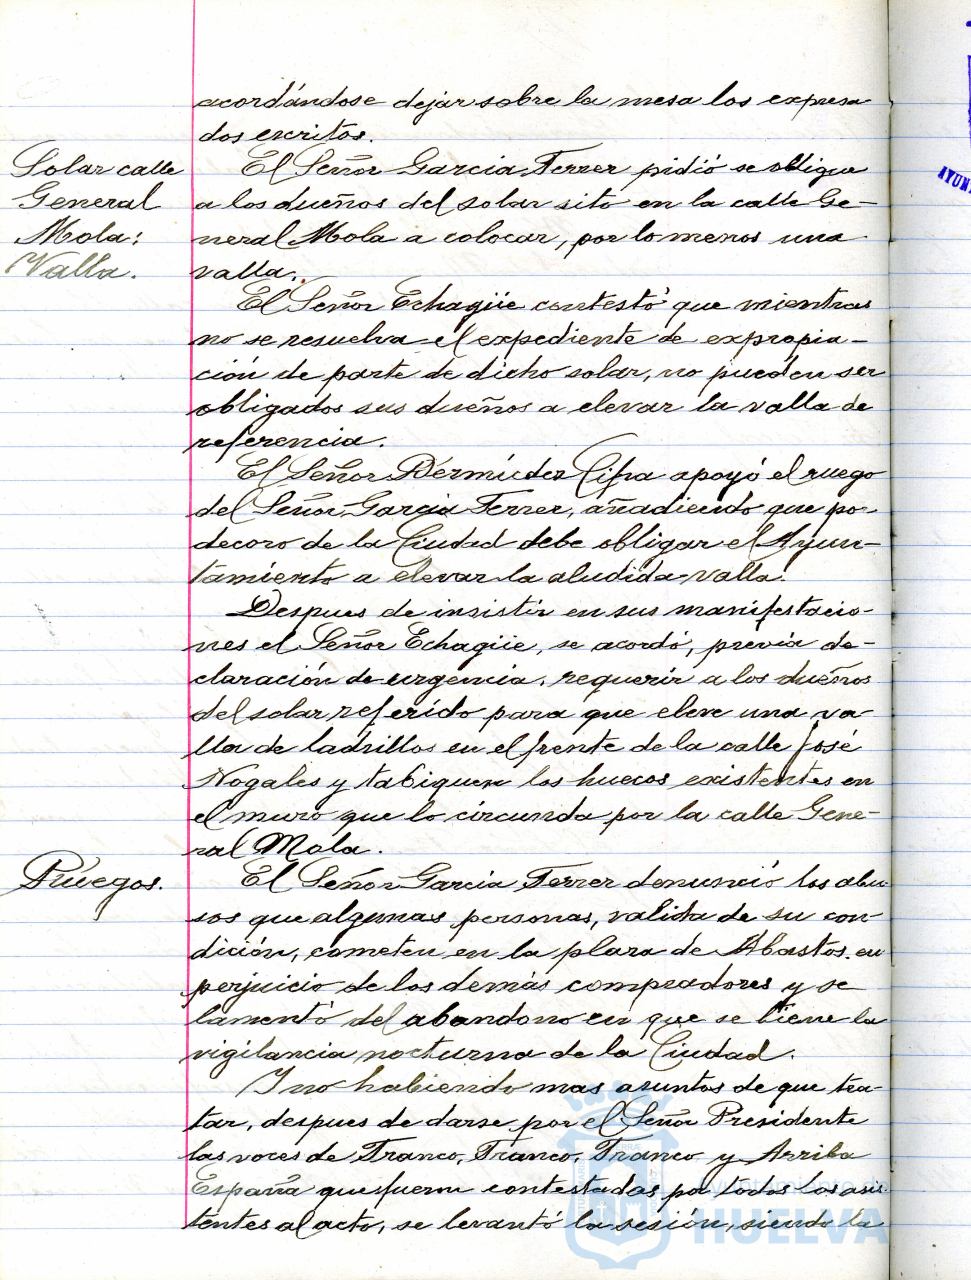 acordándose dejar sobre la mesa los expresa-
dos escritos.
Solar calle
General
Mola:
Valla.
El Señor Garcia Ferrer pidió se obligue
a los dueños del solar sito en la calle Ge-
neral Mola a colocar, por lo menos una
valla.
El Señor Echagüe contestó que mientras
no se resuelva el expediente de expropia-
ción de parte de dicho solar, no pueden ser
obligados sus dueños a elevar la valla de
referencia.
El Señor Bermúdez Cifra apoyó el ruego
del Señor Garcia Ferrer, añadiendo que por
decoro de la Ciudad debe obligar el Ayun-
tamiento a elevar la aludida valla.
Despues de insistir en sus manifestacio-
nes el Señor Echagüe, se acordó, previa de-
claración de urgencia, requerir a los dueños
del solar referido para que eleve una va-
lla de ladrillos en el frente de la calle José
Nogales y tabiquen los huecos existentes en
el muro que lo circunda por la calle Gene-
ral Mola.
Ruegos.
El Señor Garcia Ferrer denunció los abu-
sos que algunas personas, valida de su con-
dición, cometen en la plaza de Abastos en
perjuicio de los demás compradores y se
lamentó del abandono en que se tiene la
vigilancia nocturna de la Ciudad.
Y no habiendo mas asuntos de que tra-
tar, despues de darse por el Señor Presidente
las voces de Franco, Franco, Franco y Arriba
España que fueron contestadas por todos los asis-
tentes al acto, se levantó la sesión, siendo la
AYUN
Ayuntamiento de
HUELVA